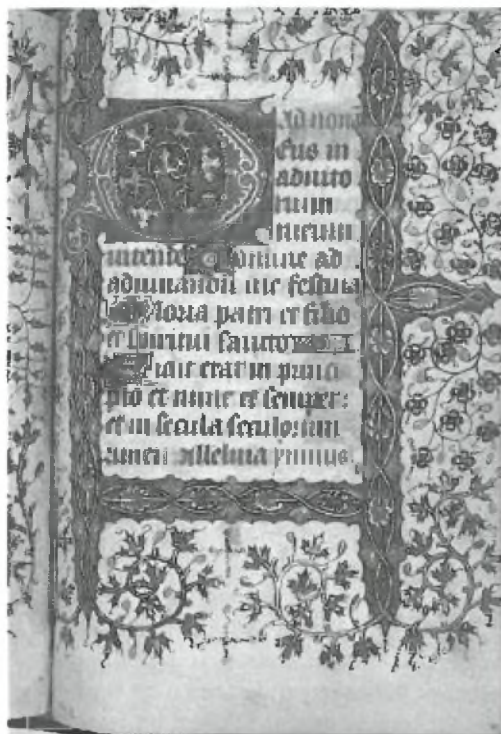 Ad nona
Deus in
adiuto
rium
meum
intende Domine ad
adiuuandū me festina
Gloria patri et filio
et spiritui sancto
Sicut erat in princi
pio et nunc et semper:
et in secula seculorum
amen alleluia ymnus.